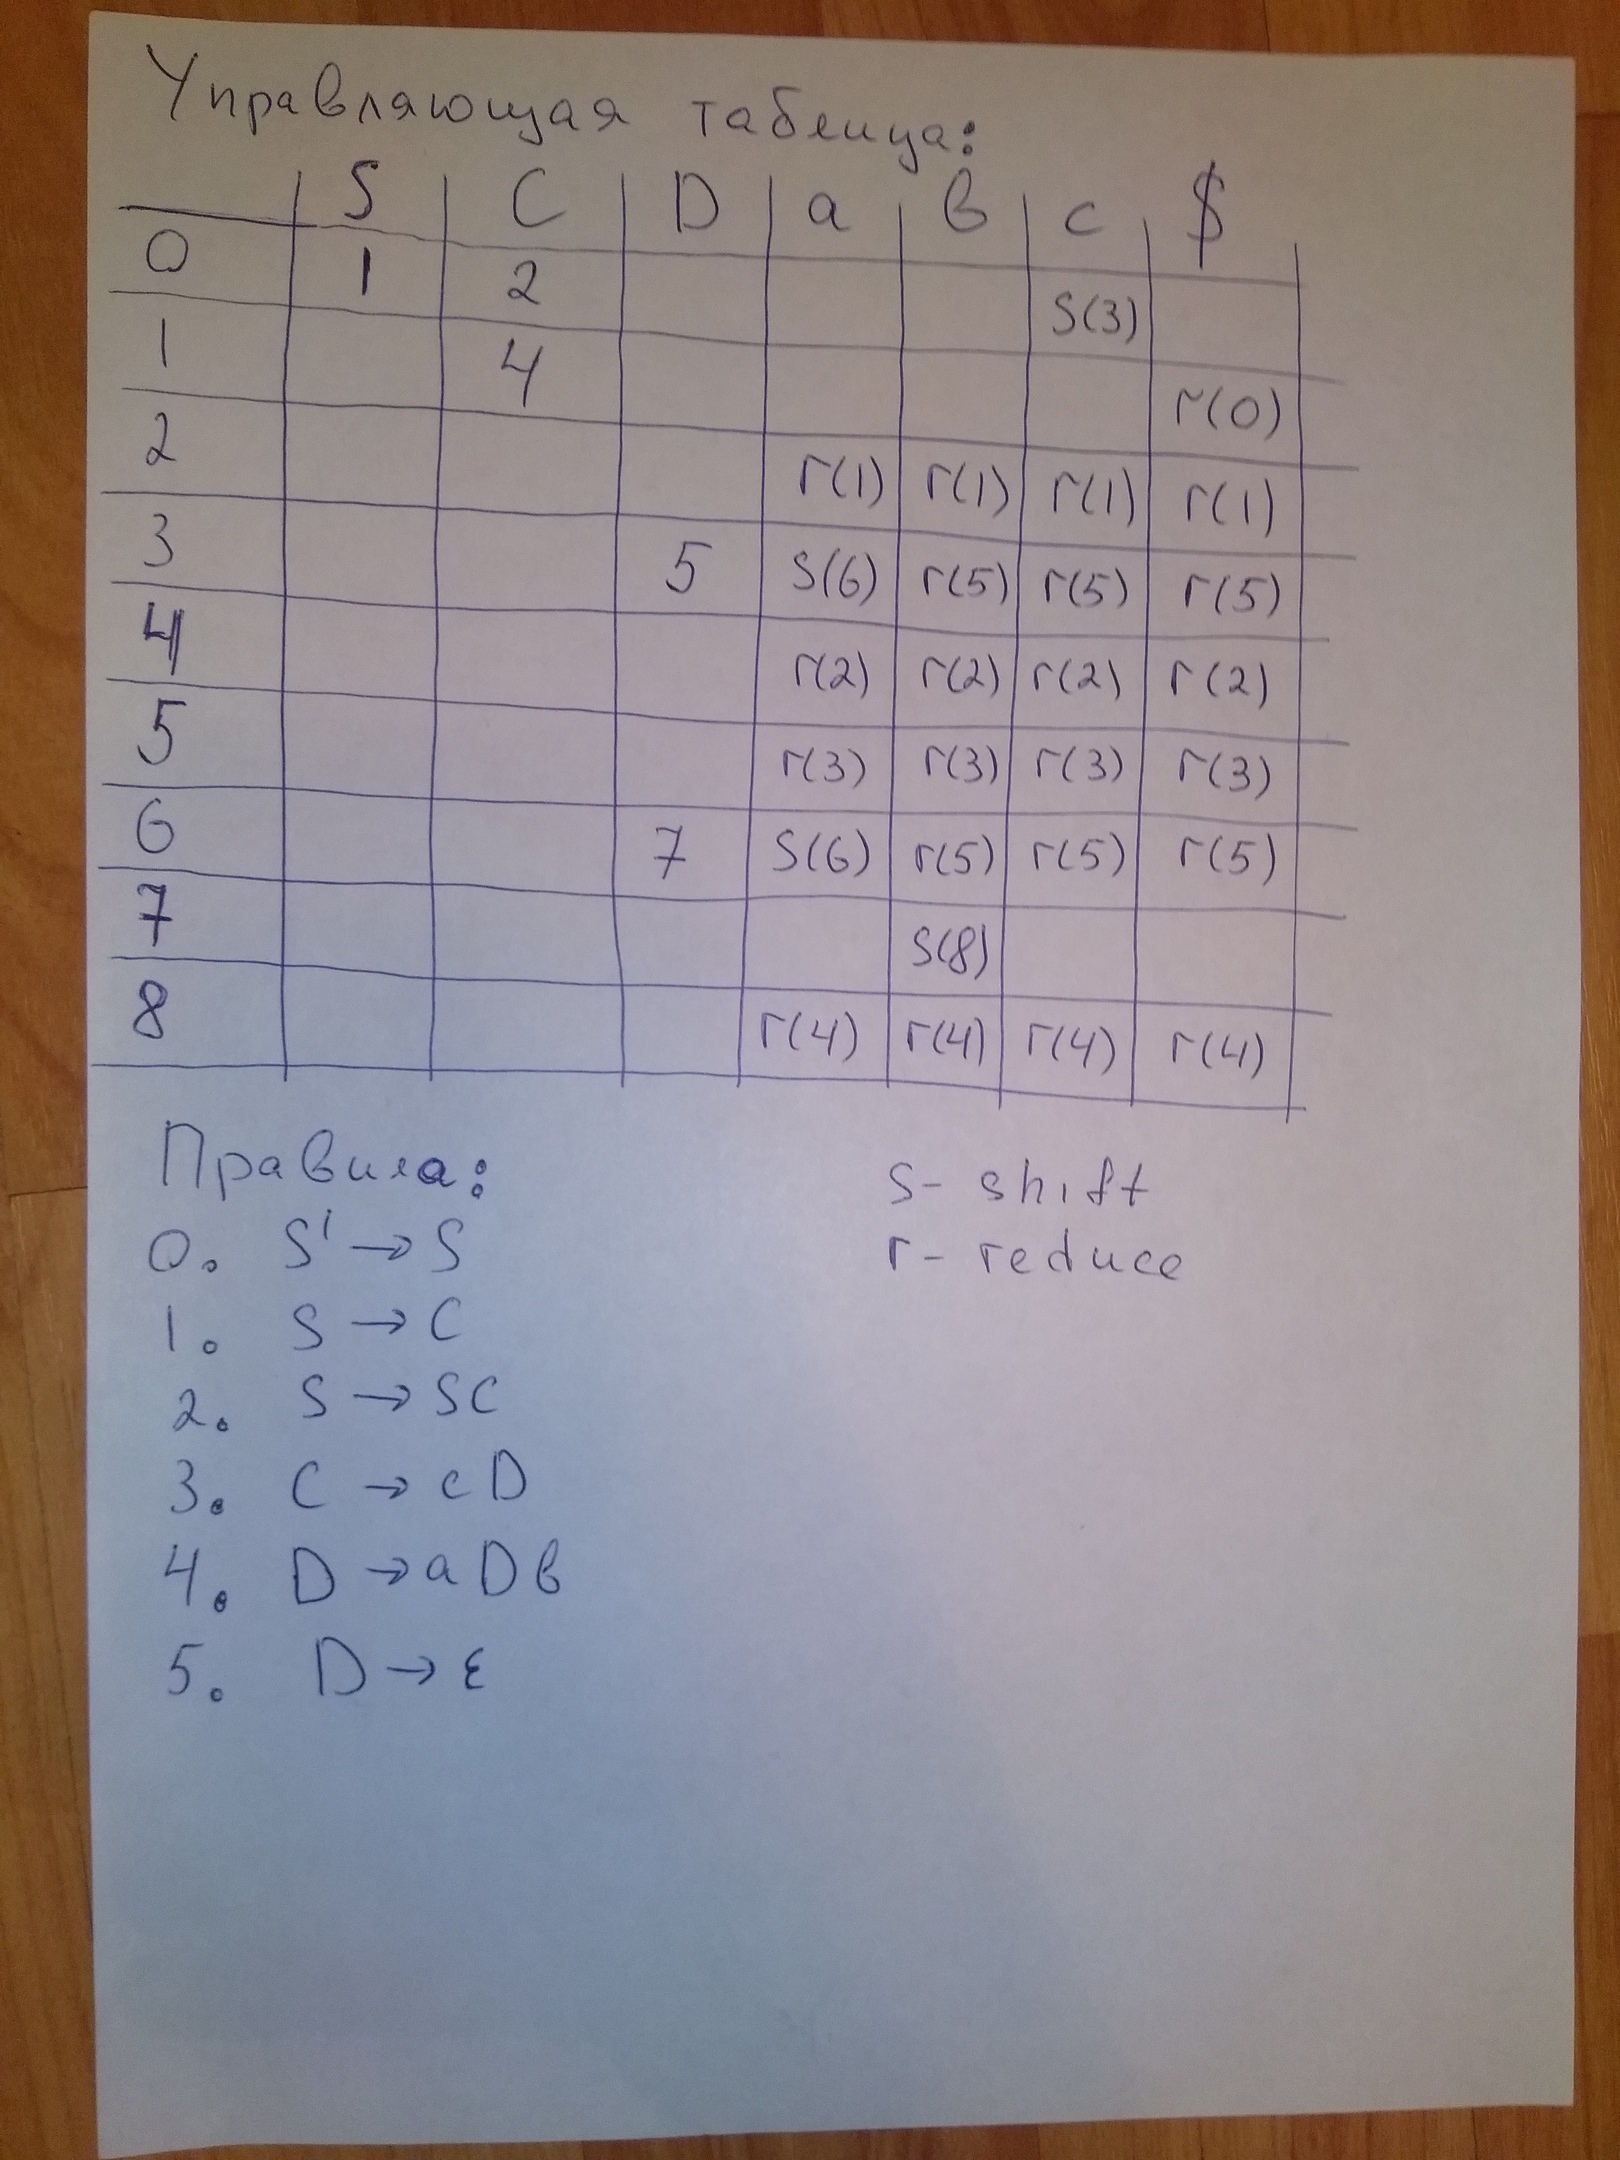 Управляющая таблица:
S C D a в c $
0 1 2 S(3)
1 4 r(0)
2 r(1) r(1) r(1) r(1)
3 5 S(6) r(5) r(5) r(5)
4 r(2) r(2) r(2) r(2)
5 r(3) r(3) r(3) r(3)
6 7 S(6) r(5) r(5) r(5)
7 S(8)
8 r(4) r(4) r(4) r(4)
Правила:
0. S' → S
1. S → C
2. S → SC
3. C → cD
4. D → aDв
5. D → ε
S - shift
r - reduce